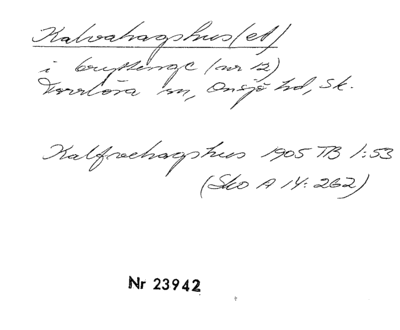 Kalvahagshus(et)
i Gryttinge (nr 12)
Torrlösa sn, Onsjö hd, Sk.
Kalfvehagshus 1905 TB 1:53
(Sko A 14: 262)
Nr 23942